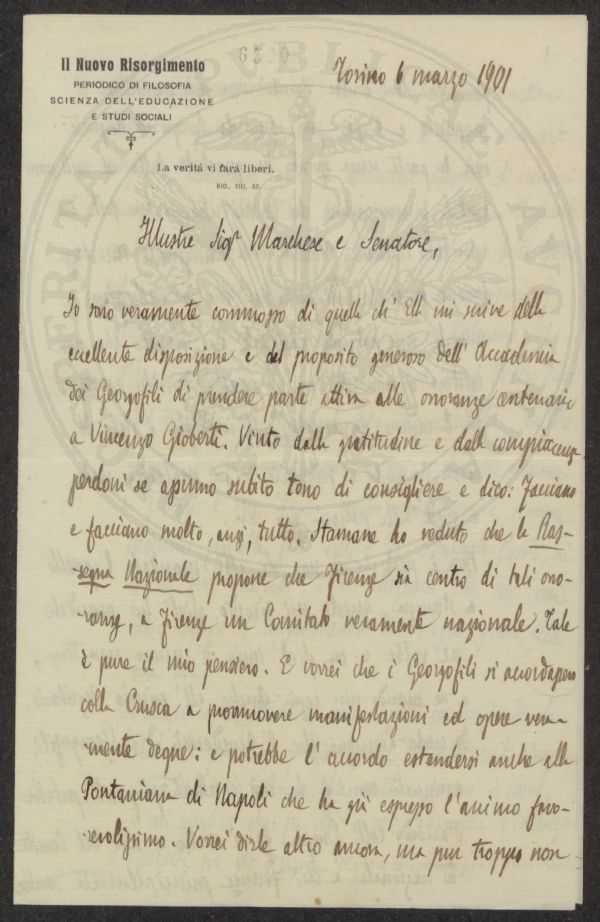 6200
Il Nuovo Risorgimento
PERIODICO DI FILOSOFIA
SCIENZA DELL'EDUCAZIONE
E STUDI SOCIALI
La verità vi farà liberi.
GIO., VIII, 32.
Torino 6 marzo 1901
Illustre Sigr Marchese e Senatore,
Io sono veramente commosso di quello ch'Ella mi scrive della
eccellente disposizione e del proposito generoso dell'Accademia
dei Georgofili di prendere parte attiva alle onoranze centenarie
a Vincenzo Gioberti. Vinto dalla gratitudine e dalla compiacenza
perdoni se assumo subito tono di consigliere e dico: Facciano
e facciano molto, anzi, tutto. Stamane ho veduto che la Ras-
segna Nazionale propone che Firenze sia centro di tali ono-
ranze, a Firenze un Comitato veramente nazionale. Tale
è pure il mio pensiero. E vorrei che i Georgofili si accordassero
colla Crusca a promuovere manifestazioni ed opere vera-
mente degne: e potrebbe l'accordo estendersi anche alla
Pontaniana di Napoli che ha già espresso l'animo favo-
revolissimo. Vorrei dirle altro ancora, ma pur troppo non